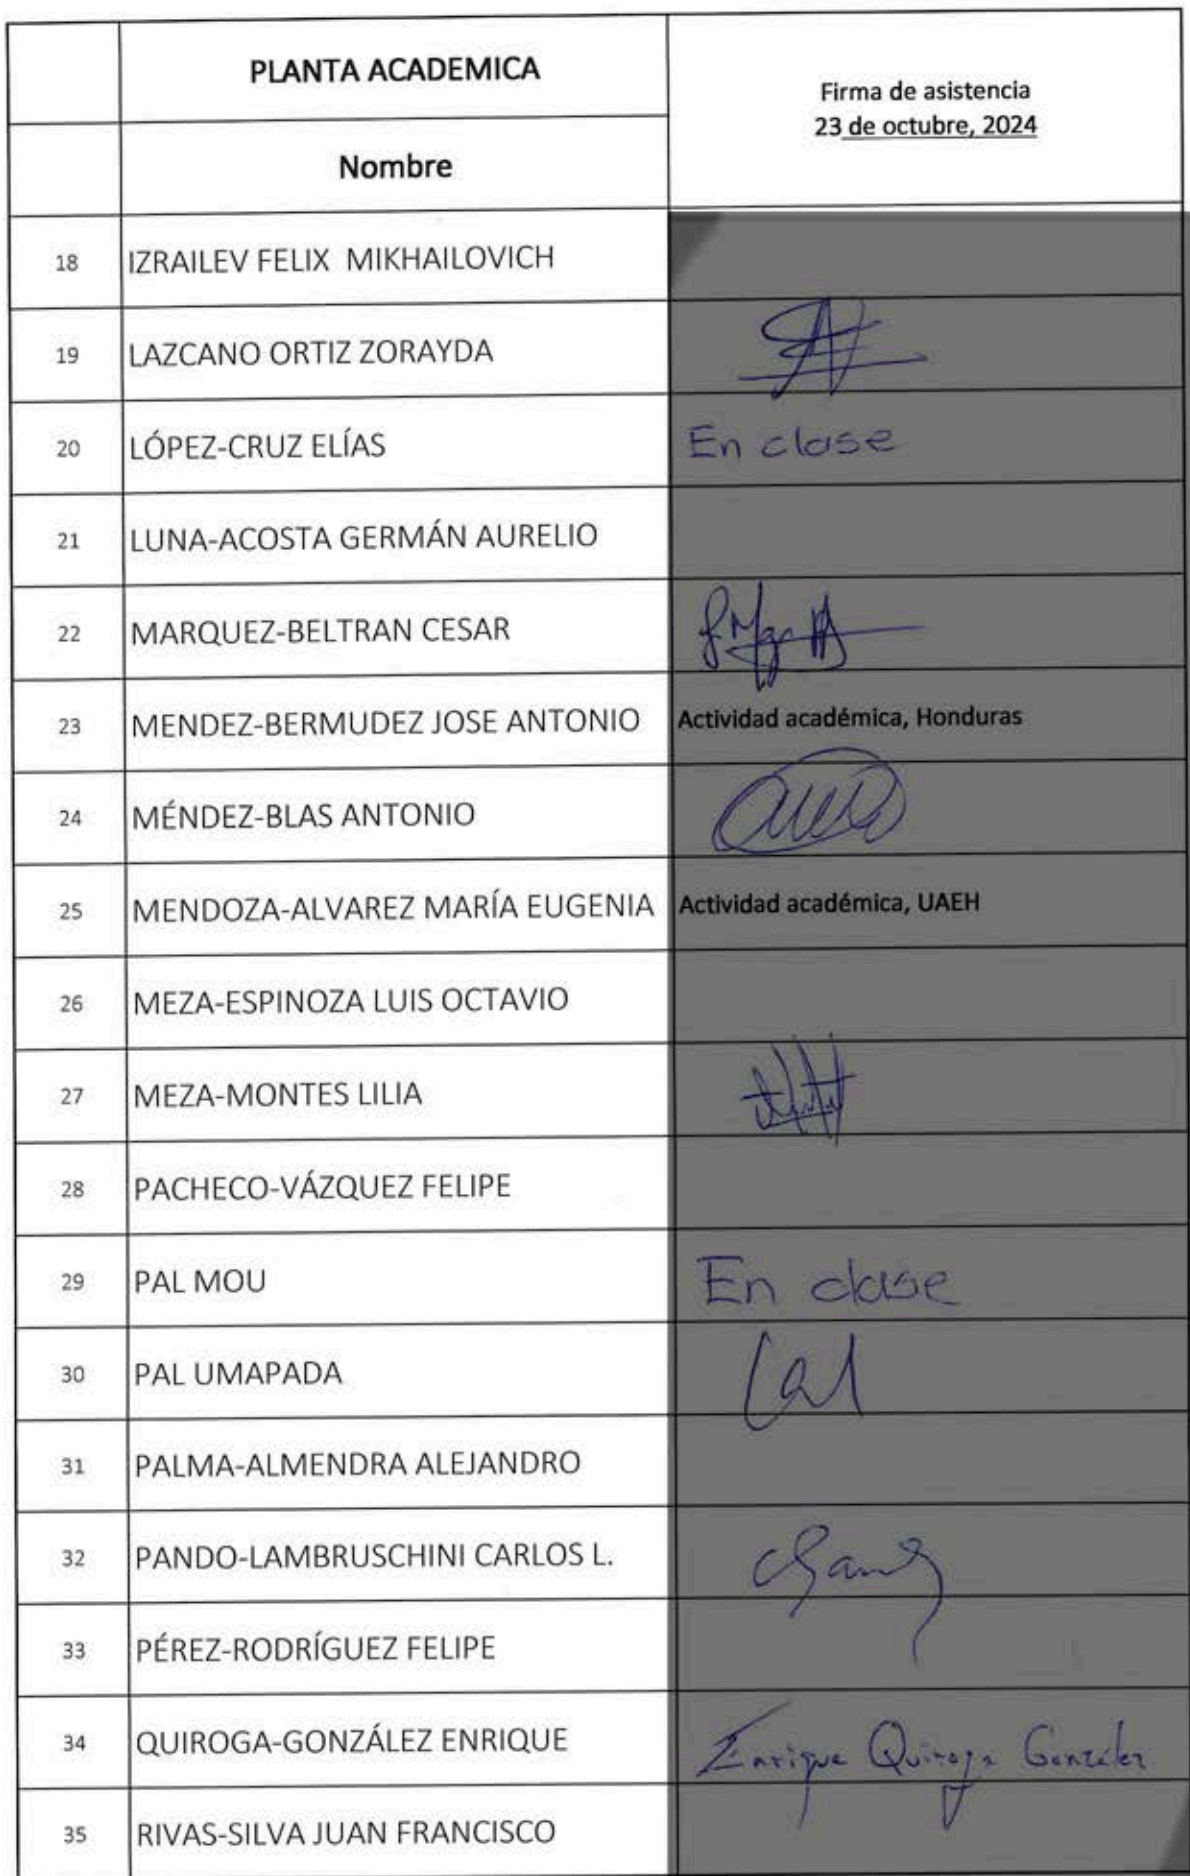 PLANTA ACADEMICA
Firma de asistencia
23 de octubre, 2024
Nombre
18 IZRAILEV FELIX MIKHAILOVICH
19 LAZCANO ORTIZ ZORAYDA
20 LÓPEZ-CRUZ ELÍAS En clase
21 LUNA-ACOSTA GERMÁN AURELIO
22 MARQUEZ-BELTRAN CESAR
23 MENDEZ-BERMUDEZ JOSE ANTONIO Actividad académica, Honduras
24 MÉNDEZ-BLAS ANTONIO
25 MENDOZA-ALVAREZ MARÍA EUGENIA Actividad académica, UAEH
26 MEZA-ESPINOZA LUIS OCTAVIO
27 MEZA-MONTES LILIA
28 PACHECO-VÁZQUEZ FELIPE
29 PAL MOU En clase
30 PAL UMAPADA
31 PALMA-ALMENDRA ALEJANDRO
32 PANDO-LAMBRUSCHINI CARLOS L.
33 PÉREZ-RODRÍGUEZ FELIPE
34 QUIROGA-GONZÁLEZ ENRIQUE Enrique Quiroga González
35 RIVAS-SILVA JUAN FRANCISCO